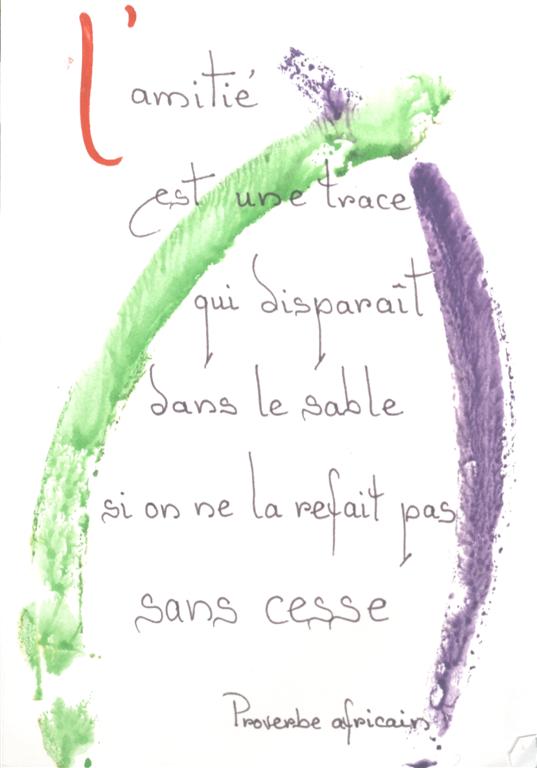 l'amitié
est une trace
qui disparaît
dans le sable
si on ne la refait pas
sans cesse
Proverbe africain